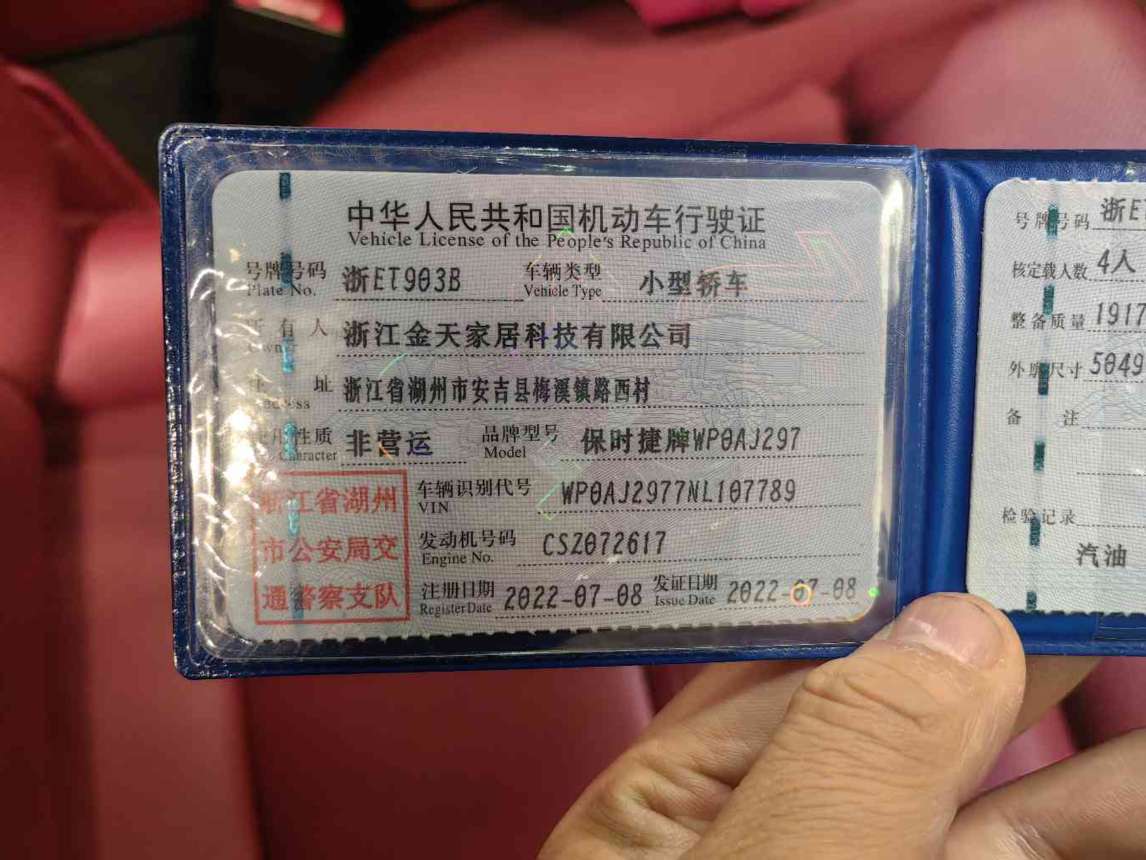 中华人民共和国机动车行驶证
Vehicle License of the People's Republic of China
号牌号码 浙ET903B 车辆类型 小型轿车
Plate No. Vehicle Type
所有人 浙江金天家居科技有限公司
Owner
住址 浙江省湖州市安吉县梅溪镇路西村
Address
使用性质 非营运 品牌型号 保时捷牌WP0AJ297
Character Model
车辆识别代号 WP0AJ2977NL107789
VIN
发动机号码 CSZ072617
Engine No.
注册日期 2022-07-08 发证日期 2022-07-08
Register Date Issue Date
浙江省湖州
市公安局交
通警察支队
号牌号码 浙E
核定载人数 4人
整备质量 1917
外廓尺寸 5049
备注
检验记录
汽油